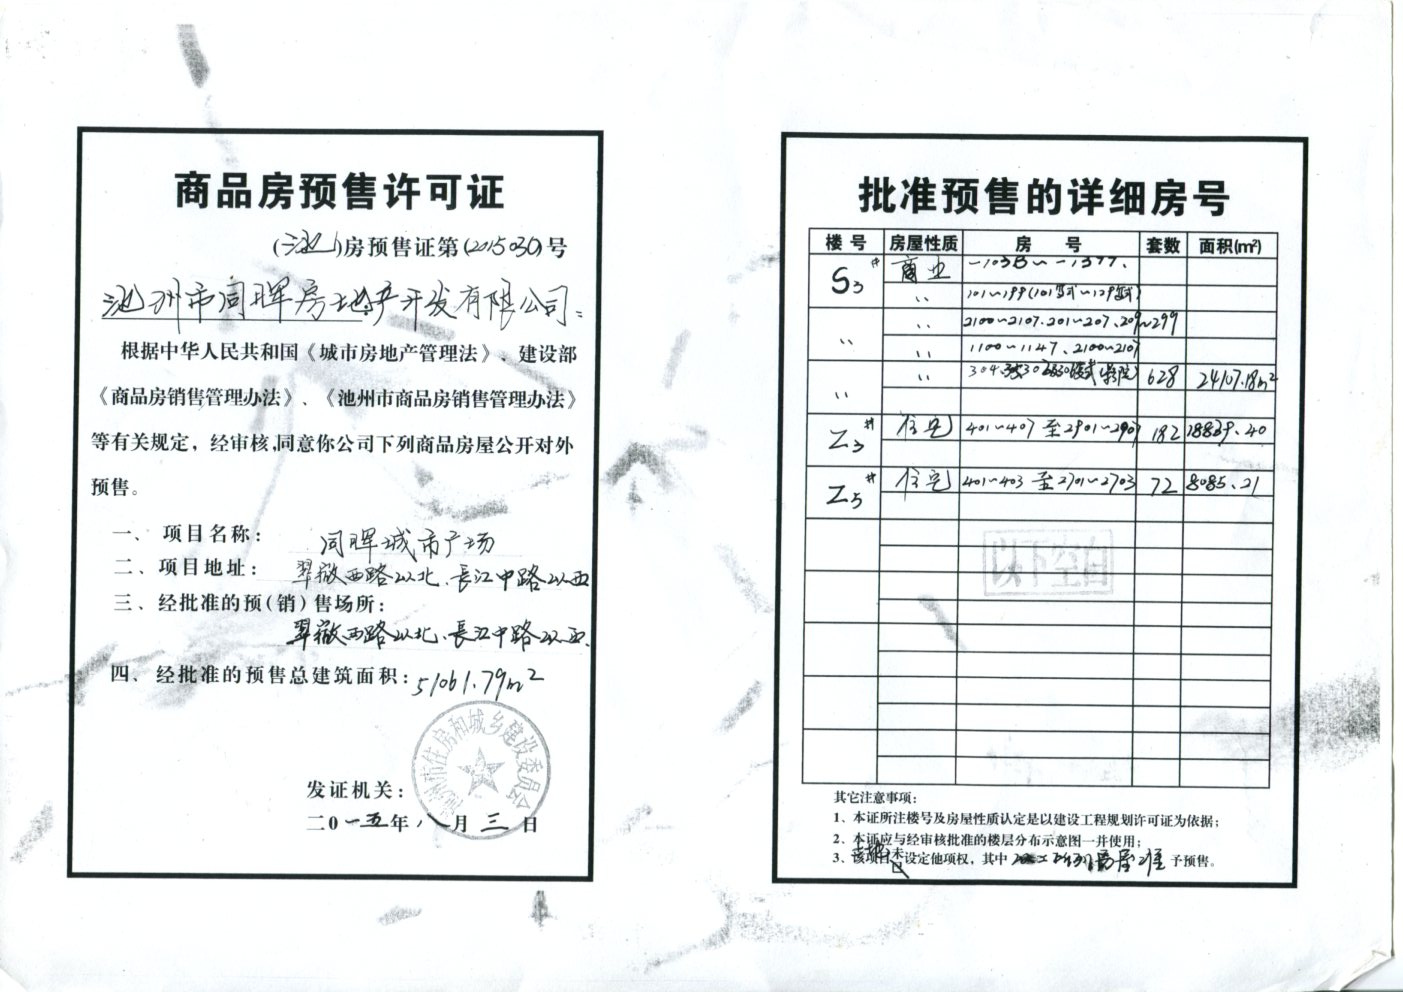 商品房预售许可证
(池)房预售证第(2015030)号
池州市同晖房地产开发有限公司：
根据中华人民共和国《城市房地产管理法》、建设部
《商品房销售管理办法》、《池州市商品房销售管理办法》
等有关规定，经审核,同意你公司下列商品房屋公开对外
预售。
一、项目名称： 同晖城市广场
二、项目地址： 翠微西路以北、長江中路以西
三、经批准的预(销)售场所：
翠微西路以北、長江中路以西、
四、经批准的预售总建筑面积：51061.79m²
池州市住房和城乡建设委员会
发证机关：
二0一五年 八月 三 日
批准预售的详细房号
楼号 房屋性质 房号 套数 面积(m²)
S3# 商业 -103B～-1377、
〃 101～199(101复式～129复式)
〃 〃 2100～2107.201～207、209～299
〃 1100～1147、2100～2107
〃 〃 304 628 24107.18m²
Z3# 住宅 401～407 至2901～2907 182 18839.40
Z5# 住宅 401～403 至2701～2703 72 8085.21
以下空白
其它注意事项：
1、本证所注楼号及房屋性质认定是以建设工程规划许可证为依据；
2、本证应与经审核批准的楼层分布示意图一并使用；
3、该项目土地未设定他项权，其中 房屋准予预售。